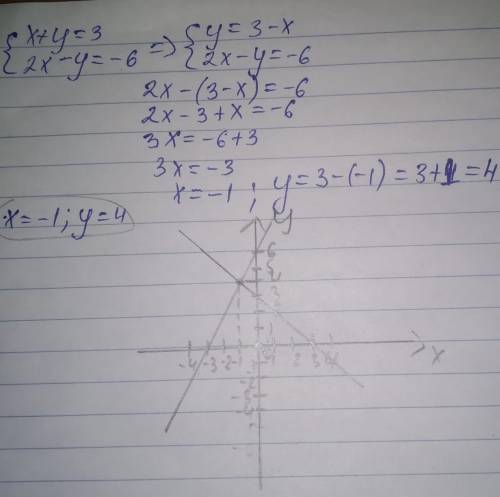 {x+y=3 => {y=3-x
{2x-y=-6 {2x-y=-6
2x-(3-x)=-6
2x-3+x=-6
3x=-6+3
3x=-3
x=-1; y=3-(-1)=3+1=4
x=-1; y=4
y
6
4
3
-4 -3 -2 -1 1 2 3 4 x